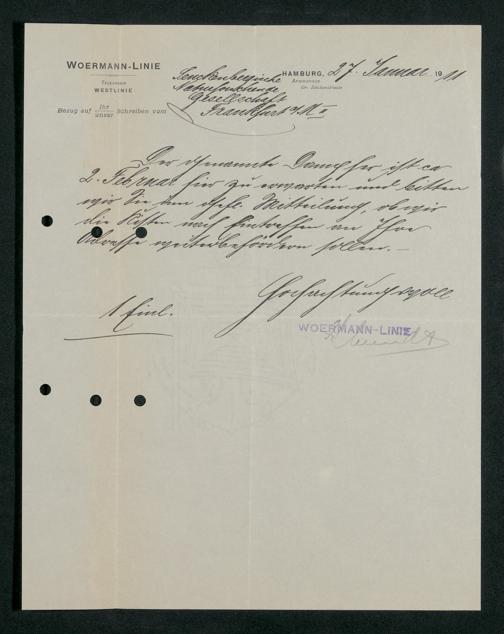 WOERMANN-LINIE
TELEGRAMME
WESTLINIE
Bezug auf Ihr/unser Schreiben vom
HAMBURG, 27. Januar 1911
Senckenbergische
Naturforschende
Gesellschaft
Frankfurt a/M
Der genannte Dampfer ist ca
2. Februar hier zu erwarten und bitten
wir Sie um gefl. Mitteilung, ob wir
die Kisten nach Eintreffen an Ihre
Adresse weiterbefördern sollen.—
Hochachtungsvoll
1 Einl.
WOERMANN-LINIE